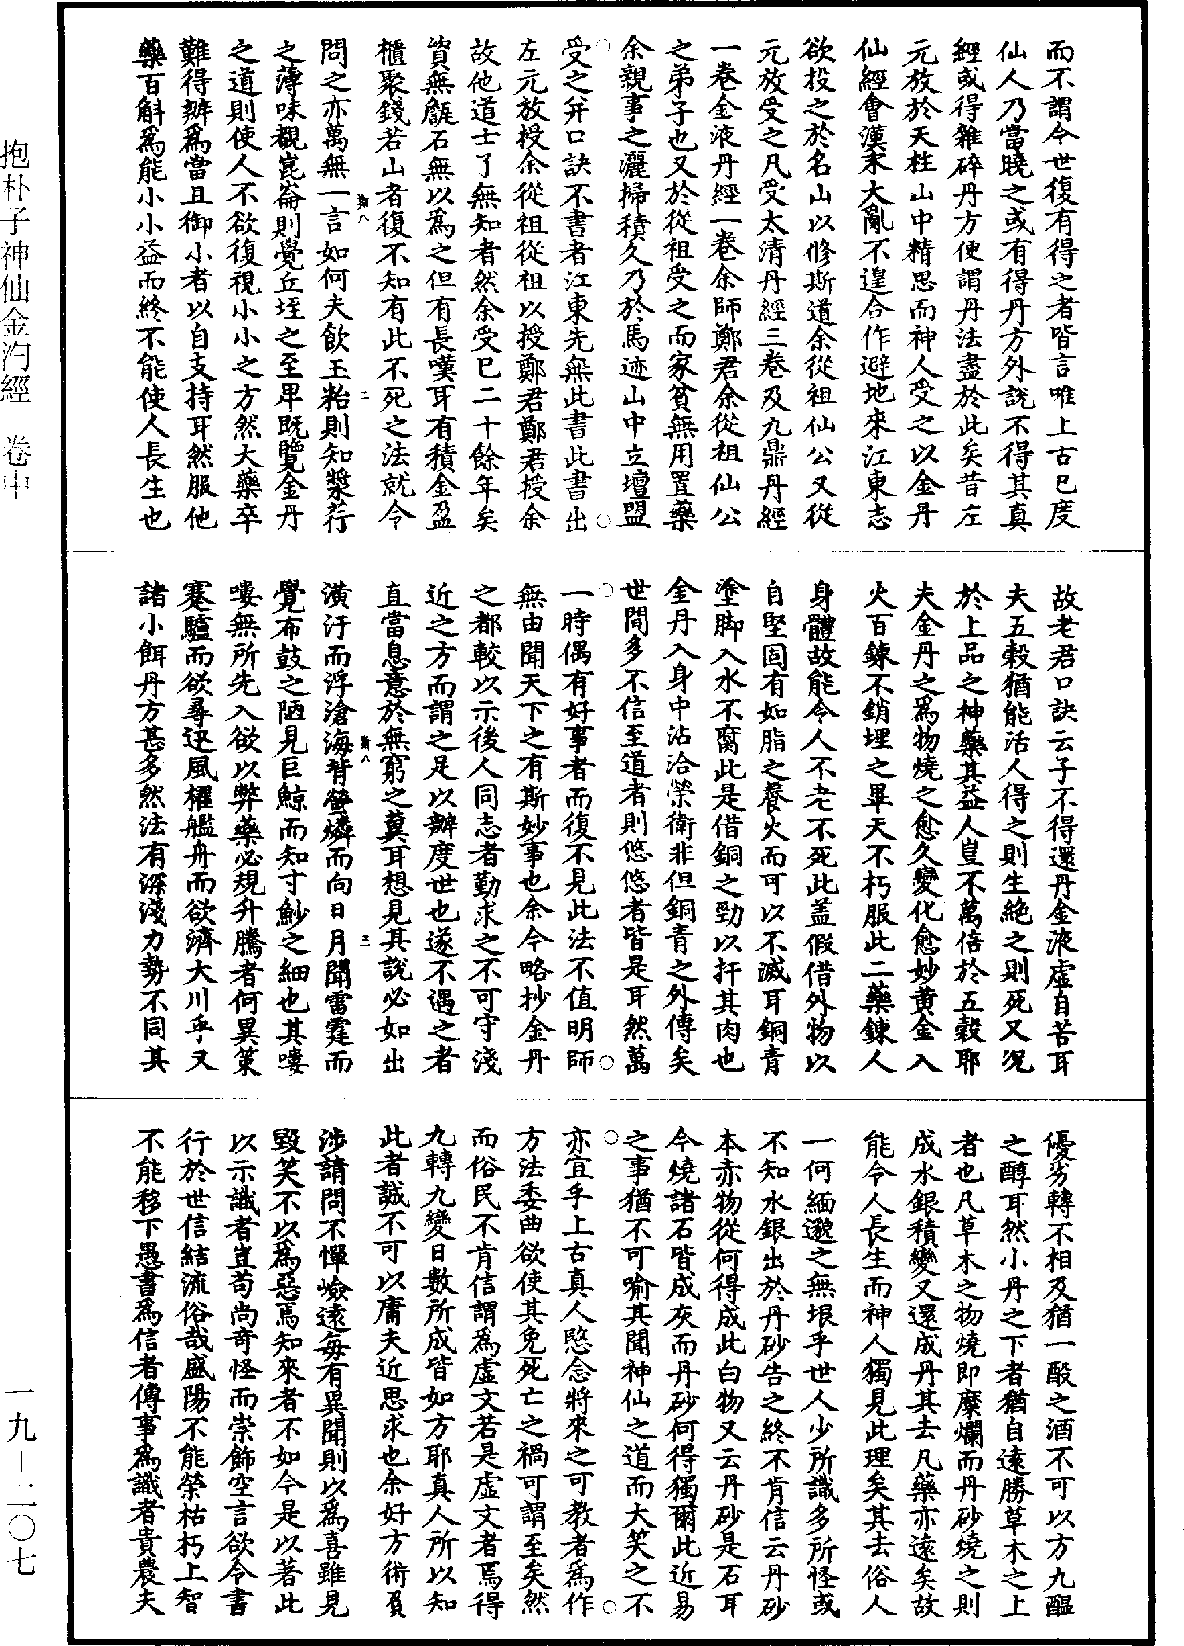 而不謂今世復有得之者皆言唯上古已度
仙人乃當曉之或有得丹方外說不得其真
經或得雜碎丹方便謂丹法盡於此矣昔左
元放於天柱山中精思而神人受之以金丹
仙經會漢末大亂不遑合作避地來江東志
欲投之於名山以修斯道余從祖仙公又從
元放受之凡受太清丹經三卷及九鼎丹經
一卷金液丹經一卷余師鄭君余從祖仙公
之弟子也又於從祖受之而家貧無用買藥
余親事之灑掃積久乃於馬迹山中立壇盟
受之并口訣不書者江東先無此書此書出
左元放授余從祖從祖以授鄭君鄭君授余
故他道士了無知者然余受已二十餘年矣
資無甔石無以為之但有長嘆耳有積金盈
櫃聚錢若山者復不知有此不死之法就令
問之亦萬無一言如何夫飲玉粭則知漿荇
之薄味覩崑崙則覺丘垤之至卑既覽金丹
之道則使人不欲復視小小之方然大藥卒
難得辦為當且御小者以自支持耳然服他
藥百斛為能小小益而終不能使人長生也
故老君口訣云子不得還丹金液虛自苦耳
夫五穀猶能活人得之則生絕之則死又況
於上品之神藥其益人豈不萬倍於五穀耶
夫金丹之為物燒之愈久變化愈妙黃金入
火百鍊不銷埋之畢天不朽服此二藥鍊人
身體故能令人不老不死此蓋假借外物以
自堅固有如脂之養火而可以不滅耳銅青
塗脚入水不腐此是借銅之勁以扞其肉也
金丹入身中沾洽榮衛非但銅青之外傳矣
世間多不信至道者則悠悠者皆是耳然萬
一時偶有好事者而復不見此法不值明師
無由聞天下之有斯妙事也余今略抄金丹
之都較以示後人同志者勤求之不可守淺
近之方而謂之足以辦度世也遂不遇之者
直當息意於無窮之冀耳想見其說必如出
潢汙而浮滄海背螢燐而向日月聞雷霆而
覺布鼓之陋見巨鯨而知寸魦之細也其嘍
嘍無所先入欲以弊藥必規升騰者何異策
蹇驢而欲尋迅風櫂艦舟而欲濟大川乎又
諸小餌丹方甚多然法有深淺力勢不同其
優劣轉不相及猶一酘之酒不可以方九醞
之醇耳然小丹之下者猶自遠勝草木之上
者也凡草木之物燒即糜爛而丹砂燒之則
成水銀積變又還成丹其去凡藥亦遠矣故
能令人長生而神人獨見此理矣其去俗人
一何緬邈之無垠乎世人少所識多所怪或
不知水銀出於丹砂告之終不肯信云丹砂
本赤物從何得成此白物又云丹砂是石耳
今燒諸石皆成灰而丹砂何得獨爾此近易
之事猶不可喻其聞神仙之道而大笑之不
亦宜乎上古真人愍念將來之可教者為作
方法委曲欲使其免死亡之禍可謂至矣然
而俗民不肯信謂為虛文若是虛文者焉得
九轉九變日數所成皆如方耶真人所以知
此者誠不可以庸夫近思求也余好方術負
涉請問不憚嶮遠每有異聞則以為喜雖見
毀笑不以為惡焉知來者不如今是以著此
以示識者豈苟尚奇怪而崇飾空言欲令書
行於世信結流俗哉盛陽不能榮枯朽上智
不能移下愚書為信者傳事為識者貴農夫
抱朴子神仙金汋經 卷中
一九－二〇七